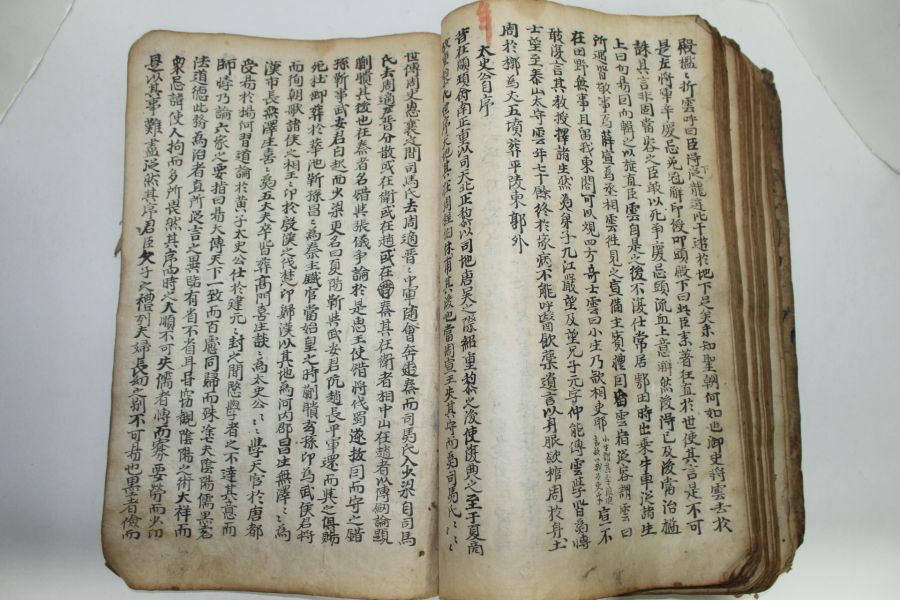 殿檻〻折雲呼曰臣得從龍逄比干遊於地下足矣未知聖朝何如也御史將雲去於
是左將軍辛慶忌免冠解印綬叩頭殿下曰此臣素著狂直於世使其言是不可
誅其言非固當容之臣敢以死爭慶忌頭流血上意解然後得已及後當治檻
上曰勿易因而輯之以旌直臣雲自是之後不復仕常居鄠田時出乘牛車從諸生
所過皆敬事焉薛宣爲丞相雲往見之宣備主賓禮因留雲宿從容謂雲曰
在田野無事且留我東閣可以觀四方奇士雲曰小生乃欲相吏耶宣不
敢復言其敎授擇諸生然後爲弟子九江嚴望及望兄子元字仲能傳雲學皆爲博
士望至泰山太守雲年七十餘終於家病不呼醫飮藥遺言以身服歛棺周於身土
周於槨爲丈五墳葬平陵東郭外
太史公自序
昔在顓頊命南正重以司天北正黎以司地唐虞之際紹重黎之後使復典之至于夏商
故重黎氏世序天地其在周程伯休甫其後也當周宣王失其守而爲司馬氏〻〻
世傳周史惠襄之間司馬氏去周適晉〻中軍隨會奔秦而司馬氏入少梁自司馬
氏去周適晉分散或在衛或在趙或在秦其在衛者相中山在趙者以傳劒論顯
蒯聵其後也在秦者名錯與張儀爭論於是惠王使錯將伐蜀遂拔因而守之錯
孫靳事武安君白起而少梁更名曰夏陽靳與武安君阬趙長平軍還而與之俱賜
死杜郵葬於華池靳孫昌〻爲秦主鐵官當始皇之時蒯聵玄孫卬爲武信君將
而徇朝歌諸侯之相王〻卬於殷漢之伐楚卬歸漢以其地爲河內郡昌生無澤〻爲
漢市長無澤生喜〻爲五大夫卒皆葬高門喜生談〻爲太史公〻〻學天官於唐都
受易於楊何習道論於黃子太史公仕於建元〻封之間愍學者之不達其意而
師悖乃論六家之要指曰易大傳天下一致而百慮同歸而殊塗夫陰陽儒墨名
法道德此務爲治者直所從言之異路有省不省耳甞竊觀陰陽之術大祥而
衆忌諱使人拘而多所畏然其序四時之大順不可失儒者博而寡要勞而少功
是以其事難盡從然其序君臣父子之禮列夫婦長幼之別不可易也墨者儉而